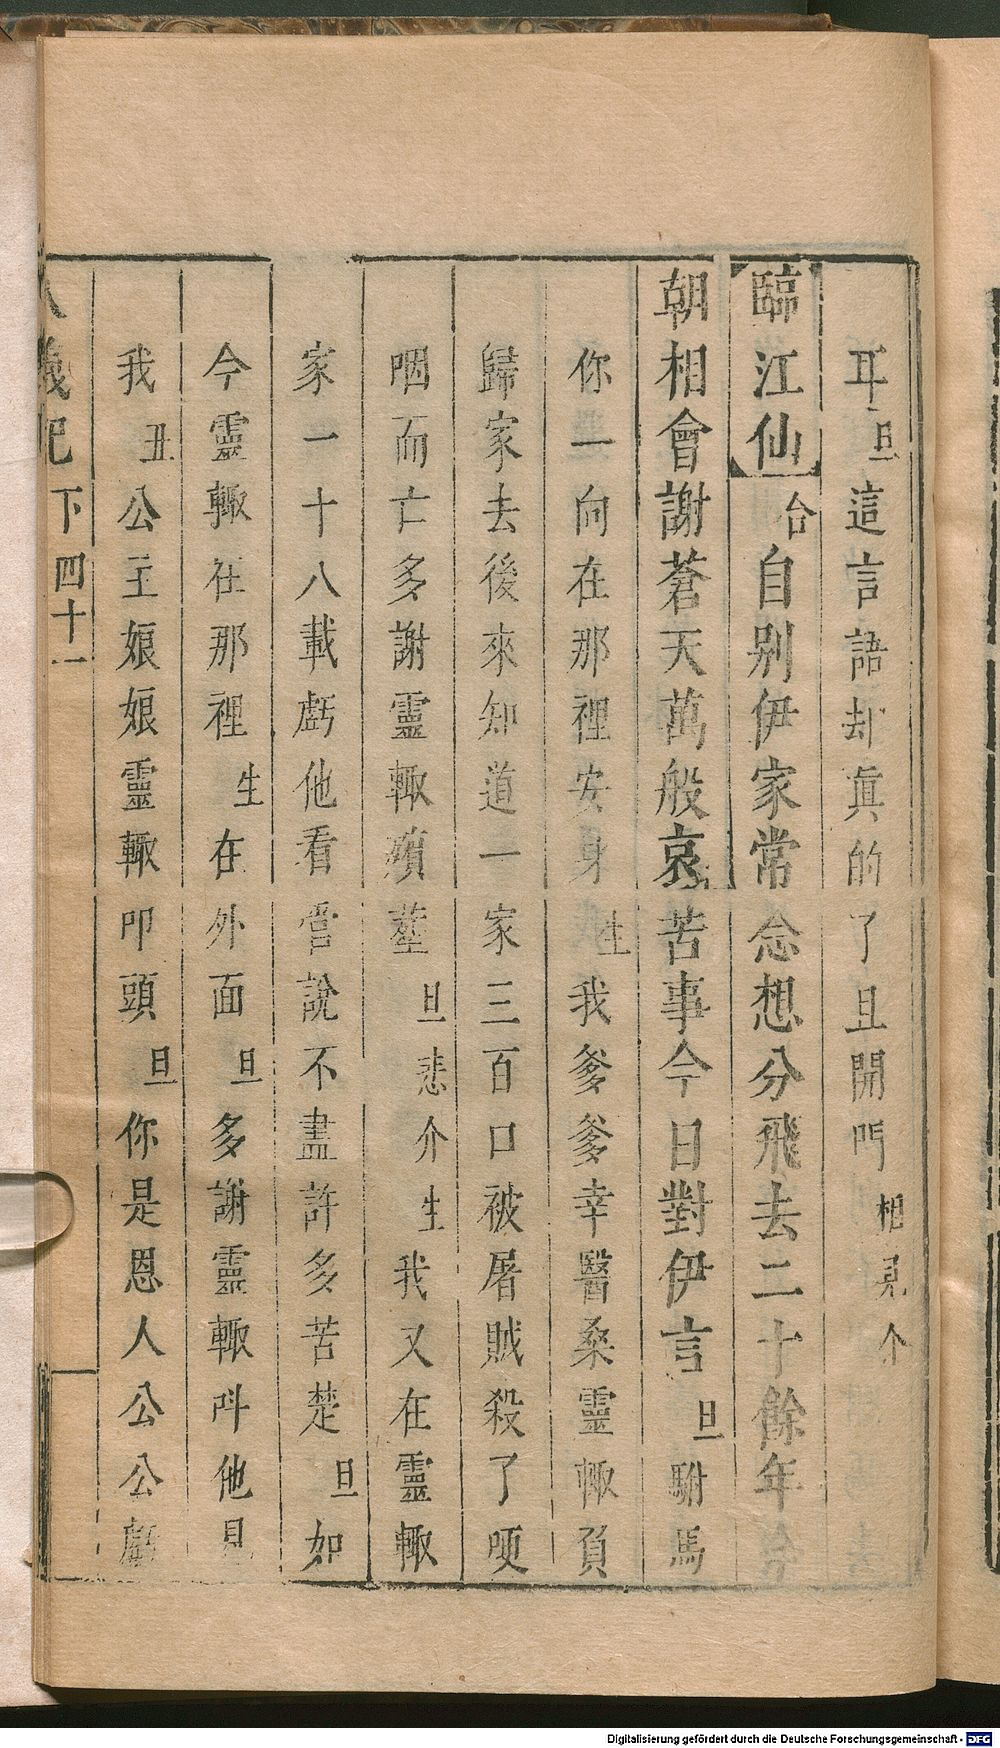 耳旦這言語却真的了且開門相見介
臨江仙合自别伊家常念想分飛去二十餘年今
朝相會謝蒼天萬般哀苦事今日對伊言旦駙馬
你一向在那裡安身生我爹爹幸醫桑靈輙負
歸家去後來知道一家三百口被屠賊殺了哽
咽而亡多謝靈輙殯塟旦悲介生我又在靈輙
家一十八載虧他看管說不盡許多苦楚旦如
今靈輙在那裡生在外面旦多謝靈輙呌他見
我丑公主娘娘靈輙叩頭旦你是恩人公公虧
八義記 下 四十一
Digitalisierung gefördert durch die Deutsche Forschungsgemeinschaft - DFG